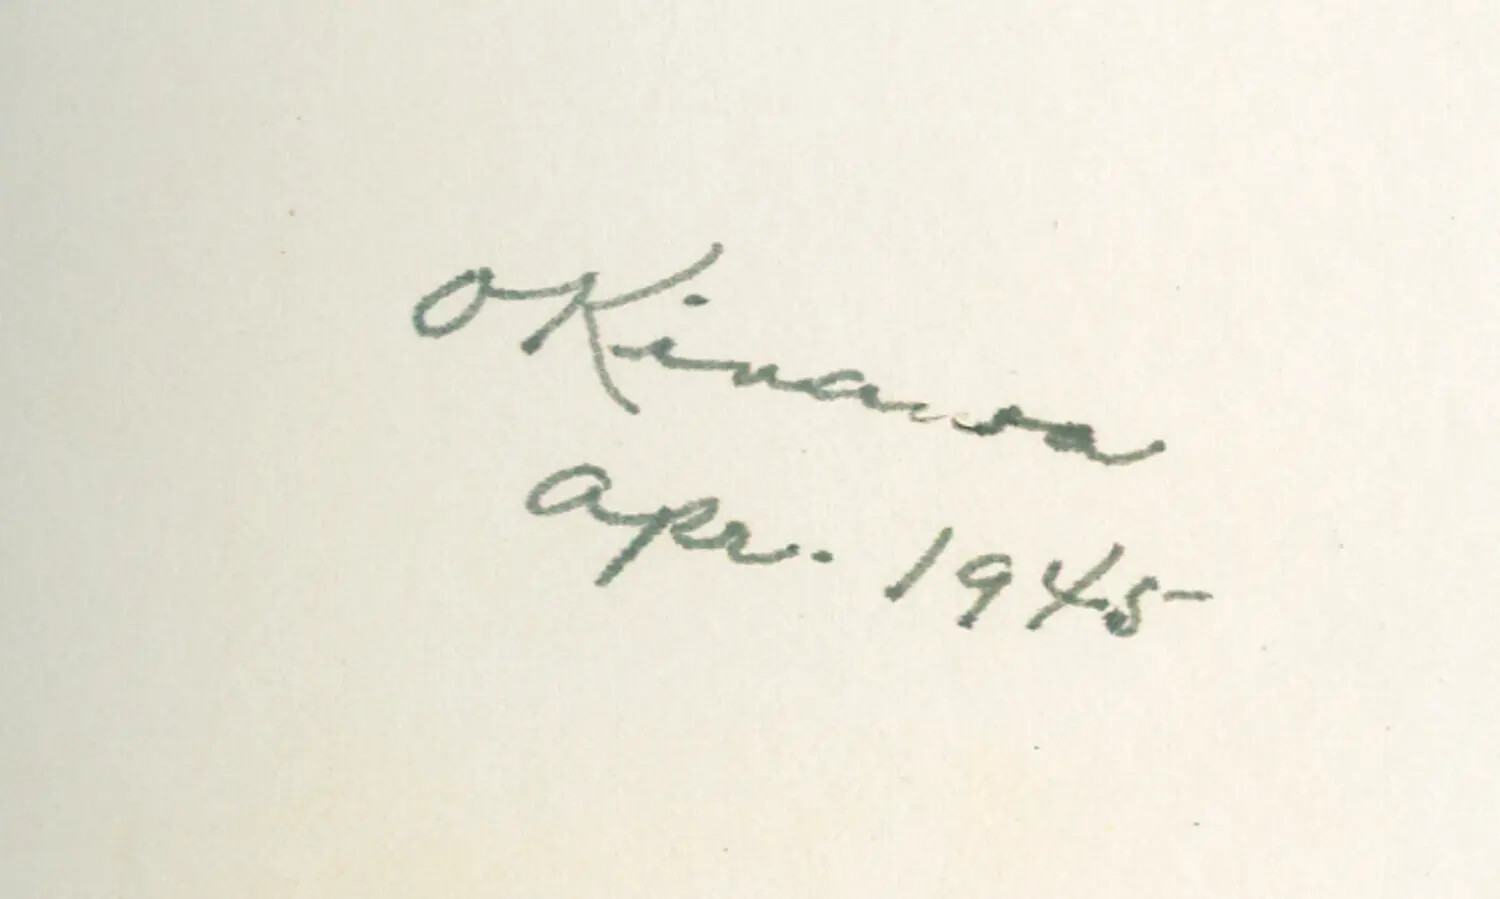 Okinawa
Apr. 1945